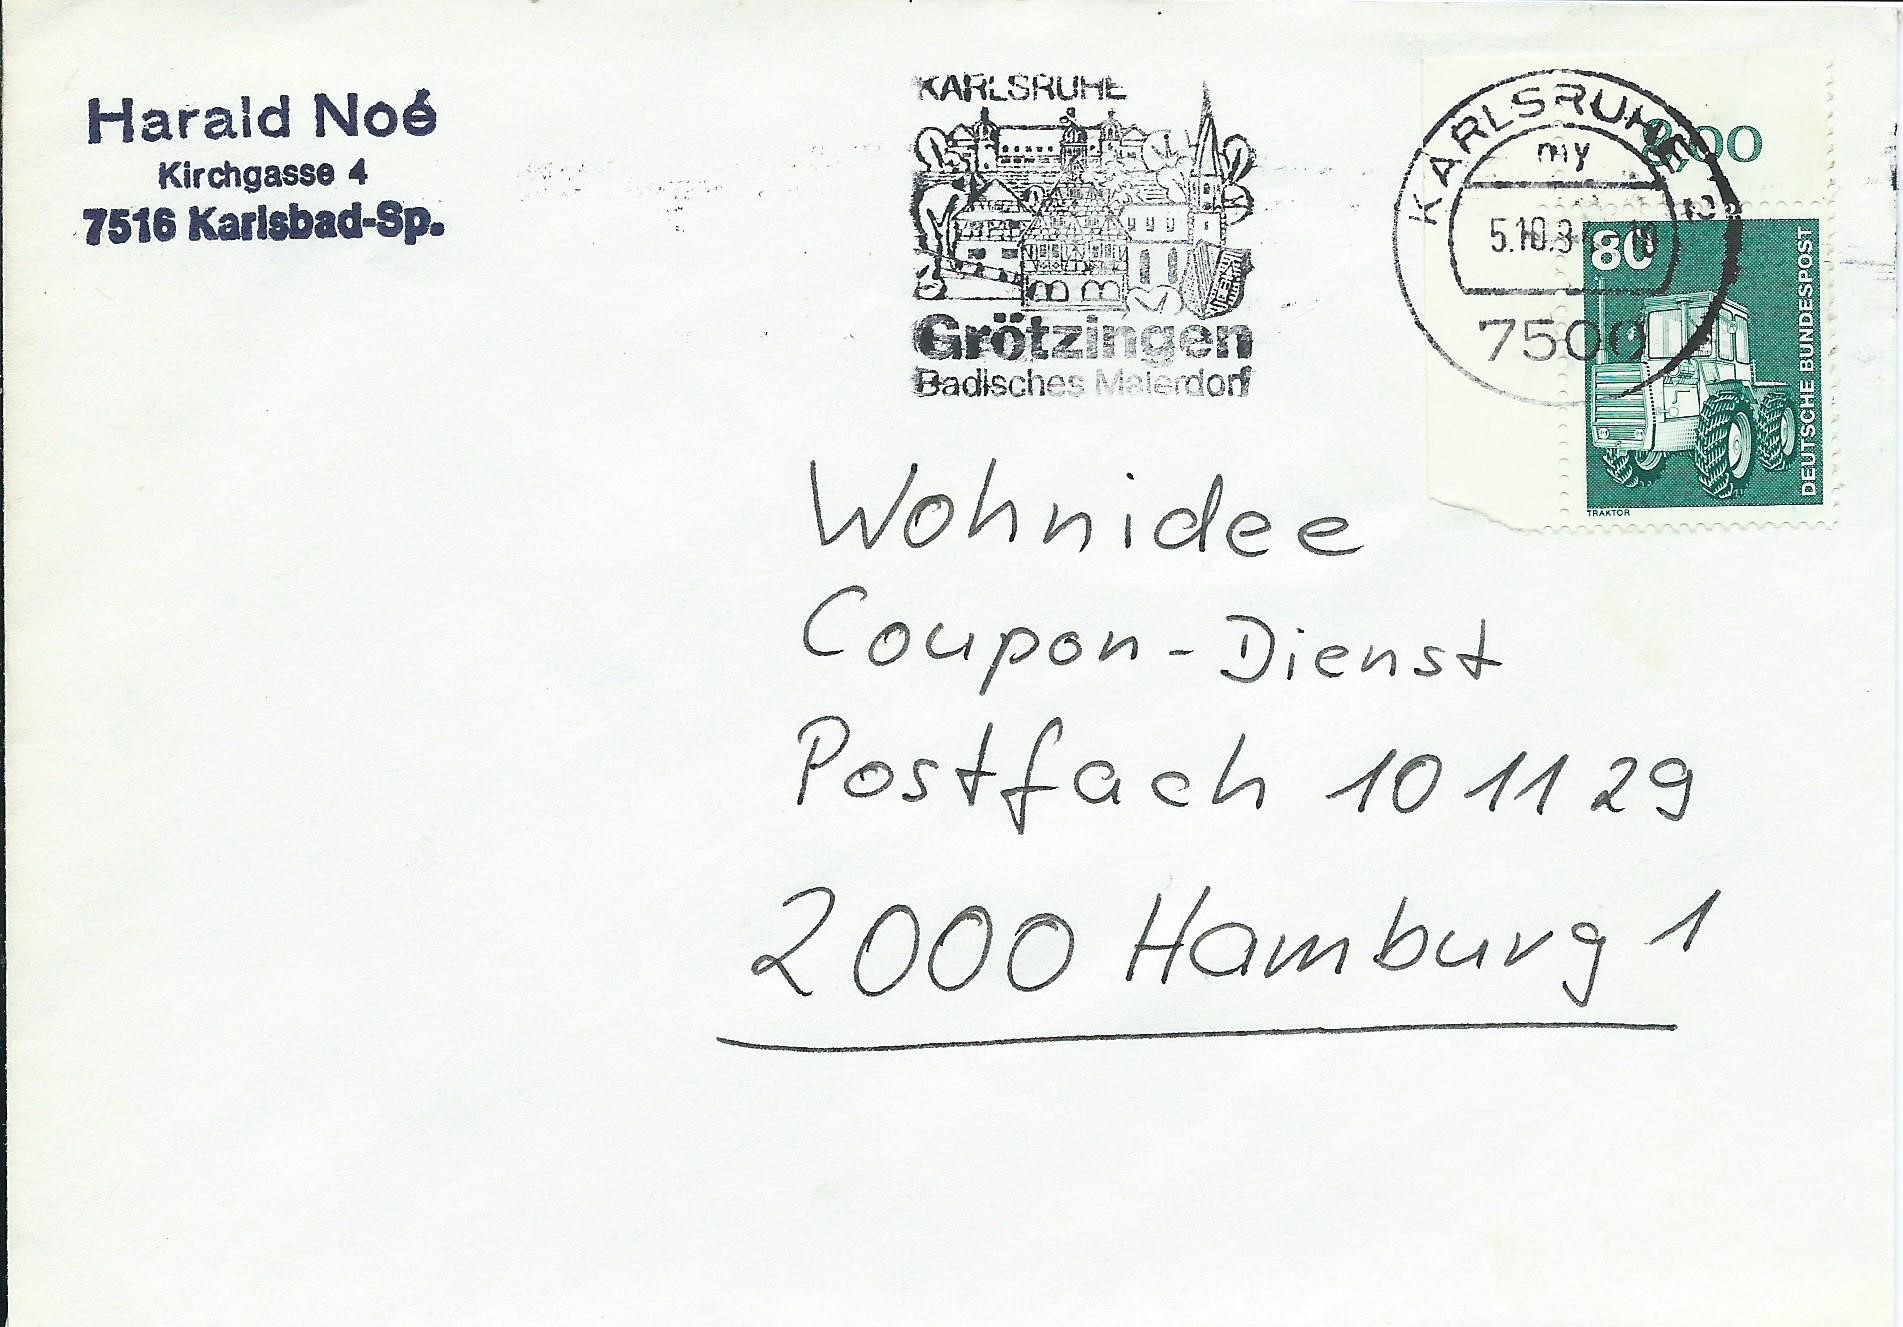 Harald Noé
Kirchgasse 4
7516 Karlsbad-Sp.
KARLSRUHE
Grötzingen
Badisches Malerdorf
KARLSRUHE
my
5.10.8
7500
8,00
80
DEUTSCHE BUNDESPOST
TRAKTOR
Wohnidee
Coupon-Dienst
Postfach 10 11 29
2000 Hamburg 1